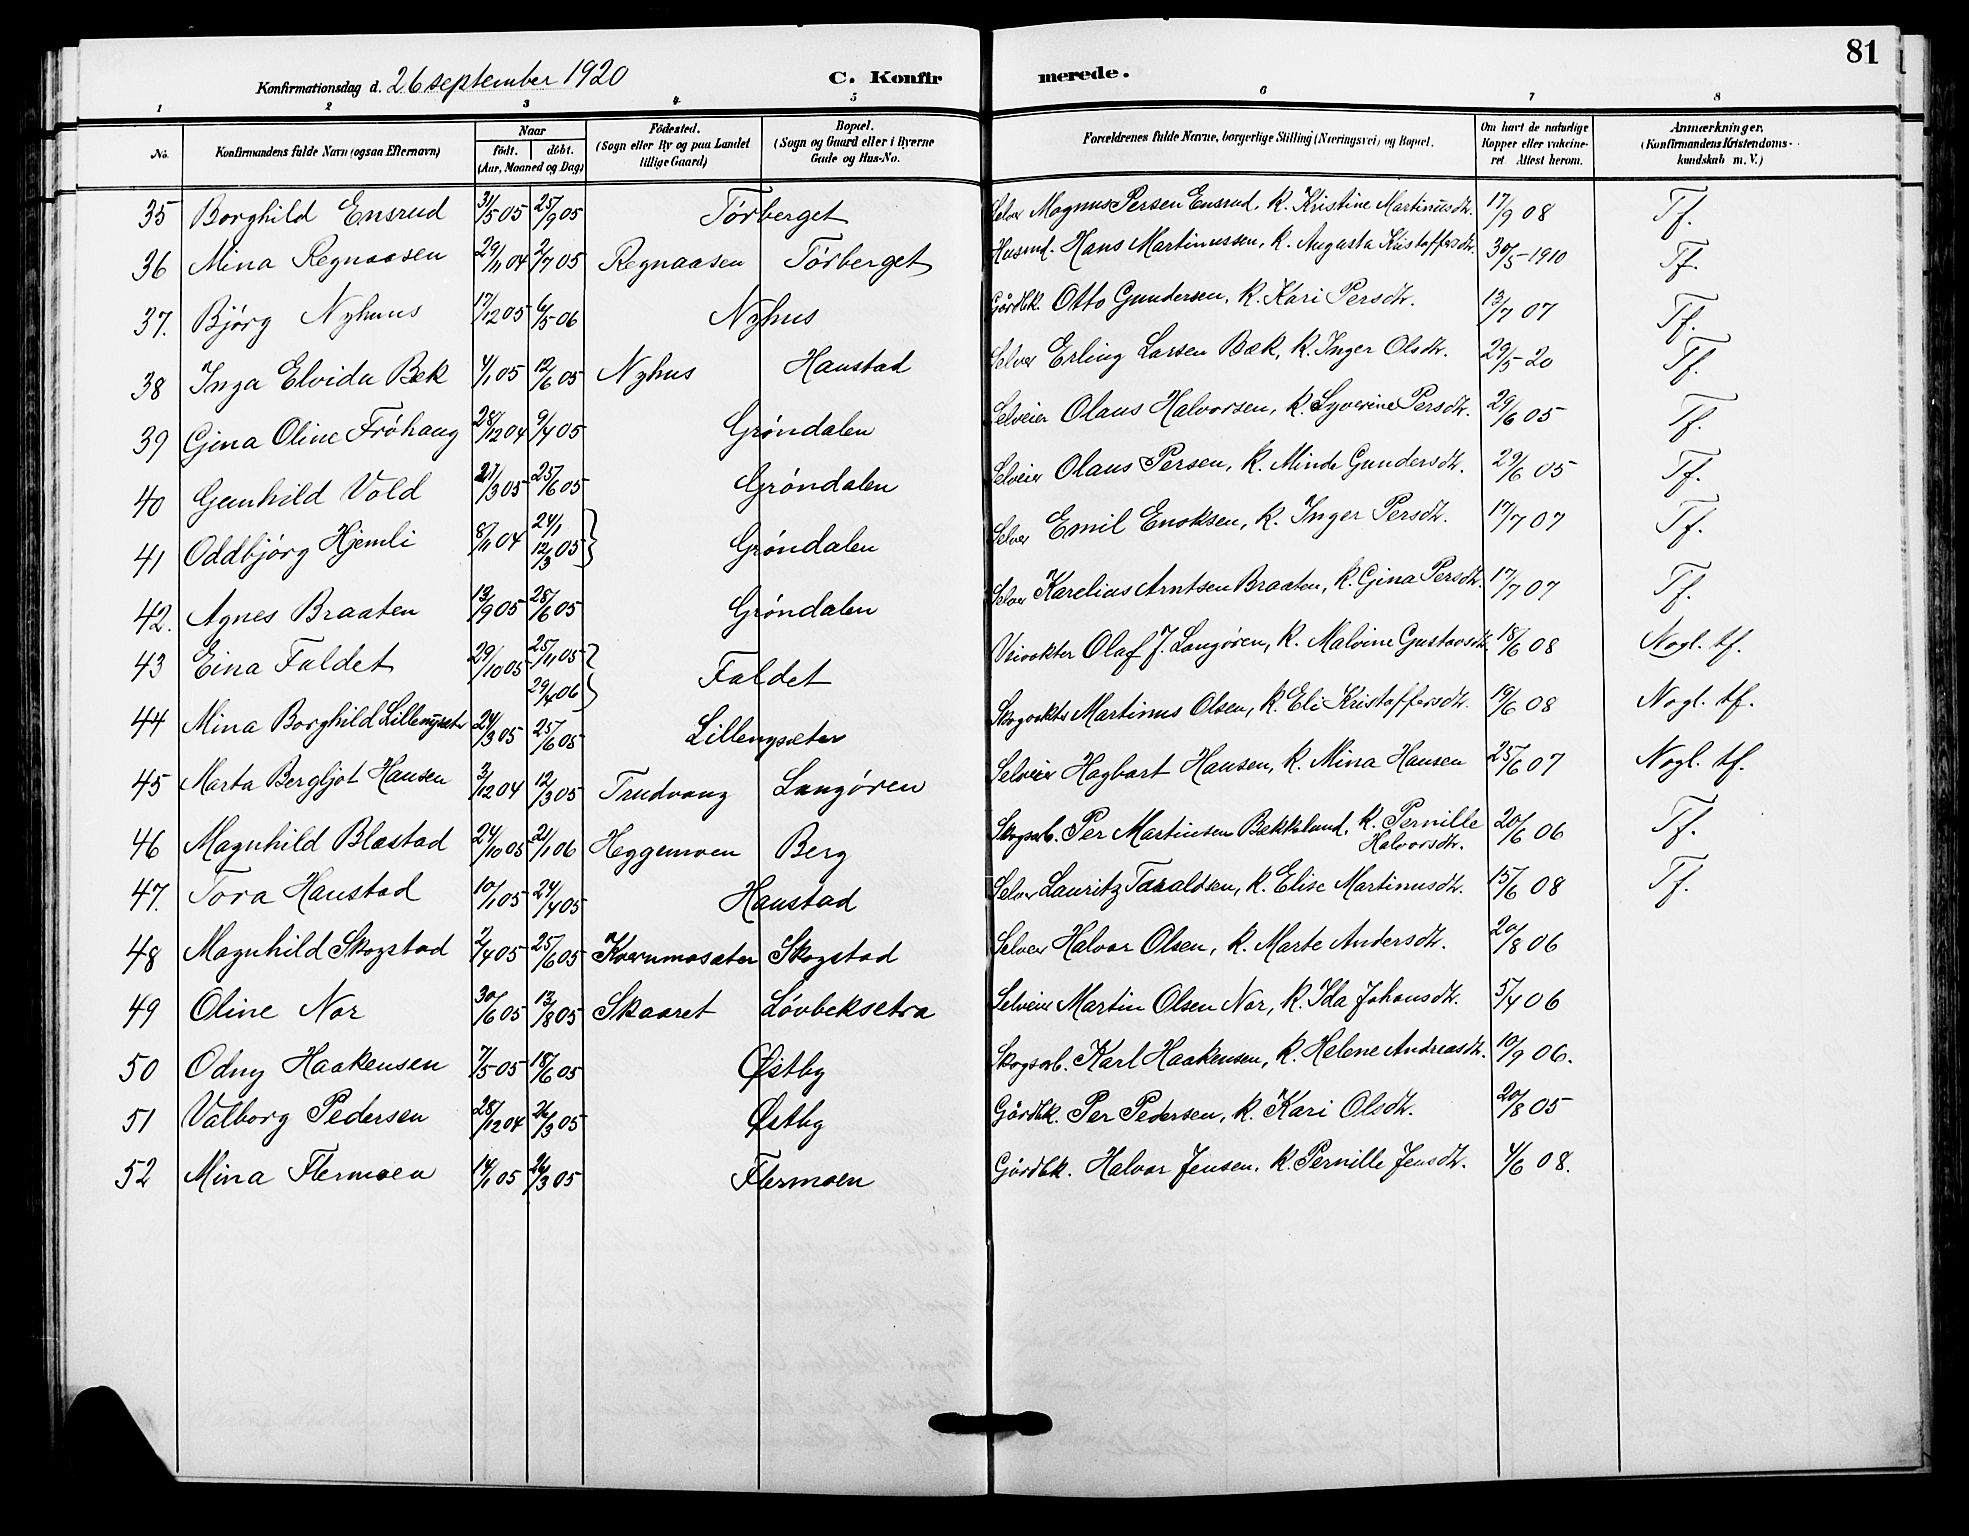 81
Konfirmationsdag d. 26 september 1920 C. Konfirmerede.
1 2 3 4 5 6 7 8
No. Konfirmandens fulde Navn (ogsaa Efternavn) Naar født. døbt. (Aar, Maaned og Dag) Fødested. (Sogn eller By og paa Landet tillige Gaard) Bopæl. (Sogn og Gaard eller i Byerne Gade og Hus-No. Forældrenes fulde Navne, borgerlige Stilling (Næringsvei) og Bopæl. Om havt de naturlige Kopper eller vakcineret Attest herom. Anmærkninger, (Konfirmandens Kristendomskundskab m. V.)
35 Borghild Ensrud 31/5 05 25/9 05 Törberget Selvei Magnus Persen Ensrud, k. Kristine Martinusdtr. 17/9 08 Tf.
36 Mina Regnaasen 29/11 04 2/7 05 Regnaasen Törberget Husmd. Hans Martinussen, k. Augusta Kristoffersdtr. 30/5-1910 Tf.
37. Bjørg Nyhuus 17/12 05 6/5 06 Nyhus Gårdbk. Otto Gundersen, k. Kari Persdtr. 13/7 07 Tf.
38 Inga Elvida Bek 4/1 05 12/6 05 Nyhus Haustad Selvei Erling Larsen Bæk, k. Inger Olsdtr. 29/5-20 Tf.
39 Gina Oline Fróhaug 28/12 04 9/4 05 Grøndalen Selveier Olaus Halvorsen, k. Syverine Persdtr. 29/6 05 Tf.
40 Gunhild Vold 21/3 05 25/6 05 Grøndalen Selveier Olaus Persen, k. Minda Gundersdtr. 29/6 05 Tf.
41 Oddbjørg Hjemli 8/11 04 24/1 12/3 05 } Grøndalen Selvei Emil Enoksen, k. Inger Persdtr. 17/7 07 Tf.
42. Agnes Braaten 13/9 05 28/6 05 Grøndalen Selvei Karelius Arntsen Braaten, k. Gina Persdtr. 17/7 07 Tf.
43 Eina Faldet 29/10 05 25/11 05 29/4 06 } Faldet Veivokter Olaf J. Langøren, k. Malvine Gustavsdtr. 18/6 08 Nogl. tf.
44 Mina Borghild Lillenysæter 24/3 05 25/6 05 Lillenysæter Skogvokter Martinus Olsen, k. Eli Kristoffersdtr. 19/6 08 Nogl. tf.
45 Marta Bergljot Hansen 3/12 04 12/3 05 Trudvang Langøren Selveier Hagbart Hansen, k. Mina Hansen 25/6 07 Nogl. tf.
46 Magnhild Blæstad 24/10 05 21/1 06 Heggemoen Berg Skogsarb. Per Martinsen Bækkeland, k. Pernille Halvorsdtr. 20/6 06 Tf.
47. Tora Haustad 10/1 05 24/4 05 Haustad Selvei Lauritz Taraldsen, k. Elise Martinusdtr. 15/6 08 Tf.
48 Magnhild Skogstad 2/4 05 25/6 05 Kvernmosæter Skogstad Selveir Halvor Olsen, k. Marte Andersdtr. 20/8 06
49 Oline Nor 30/6 05 13/8 05 Skaaret Løvbeksetra Selveier Martin Olsen Nor, k. Ida Johansdtr. 5/4 06
50 Odny Haakensen 7/5 05 18/6 05 Østby Skogsarb. Karl Haakensen, k. Helene Andreasdtr. 10/9 06.
51 Valborg Pedersen 28/12 04 26/3 05 Østby Gårdbk. Per Pedersen, k. Kari Olsdtr. 20/8 05
52 Mina Flermoen 14/1 05 26/3 05 Flermoen Gårdbk. Halvor Jensen, k. Pernille Jensdtr. 4/6 08.